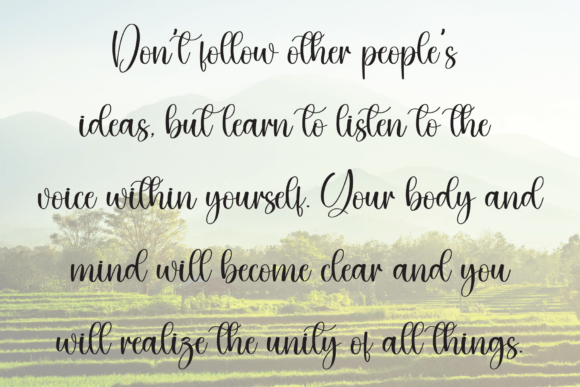 Don't follow other people's
ideas, but learn to listen to the
voice within yourself. Your body and
mind will become clear and you
will realize the unity of all things.